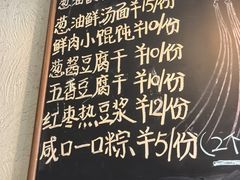 葱油鲜汤面¥15/份
鲜肉小馄饨¥10/份
葱酱豆腐干¥10/份
五香豆腐干¥10/份
红枣热豆浆¥12/份
咸口一口粽¥5/份(2个